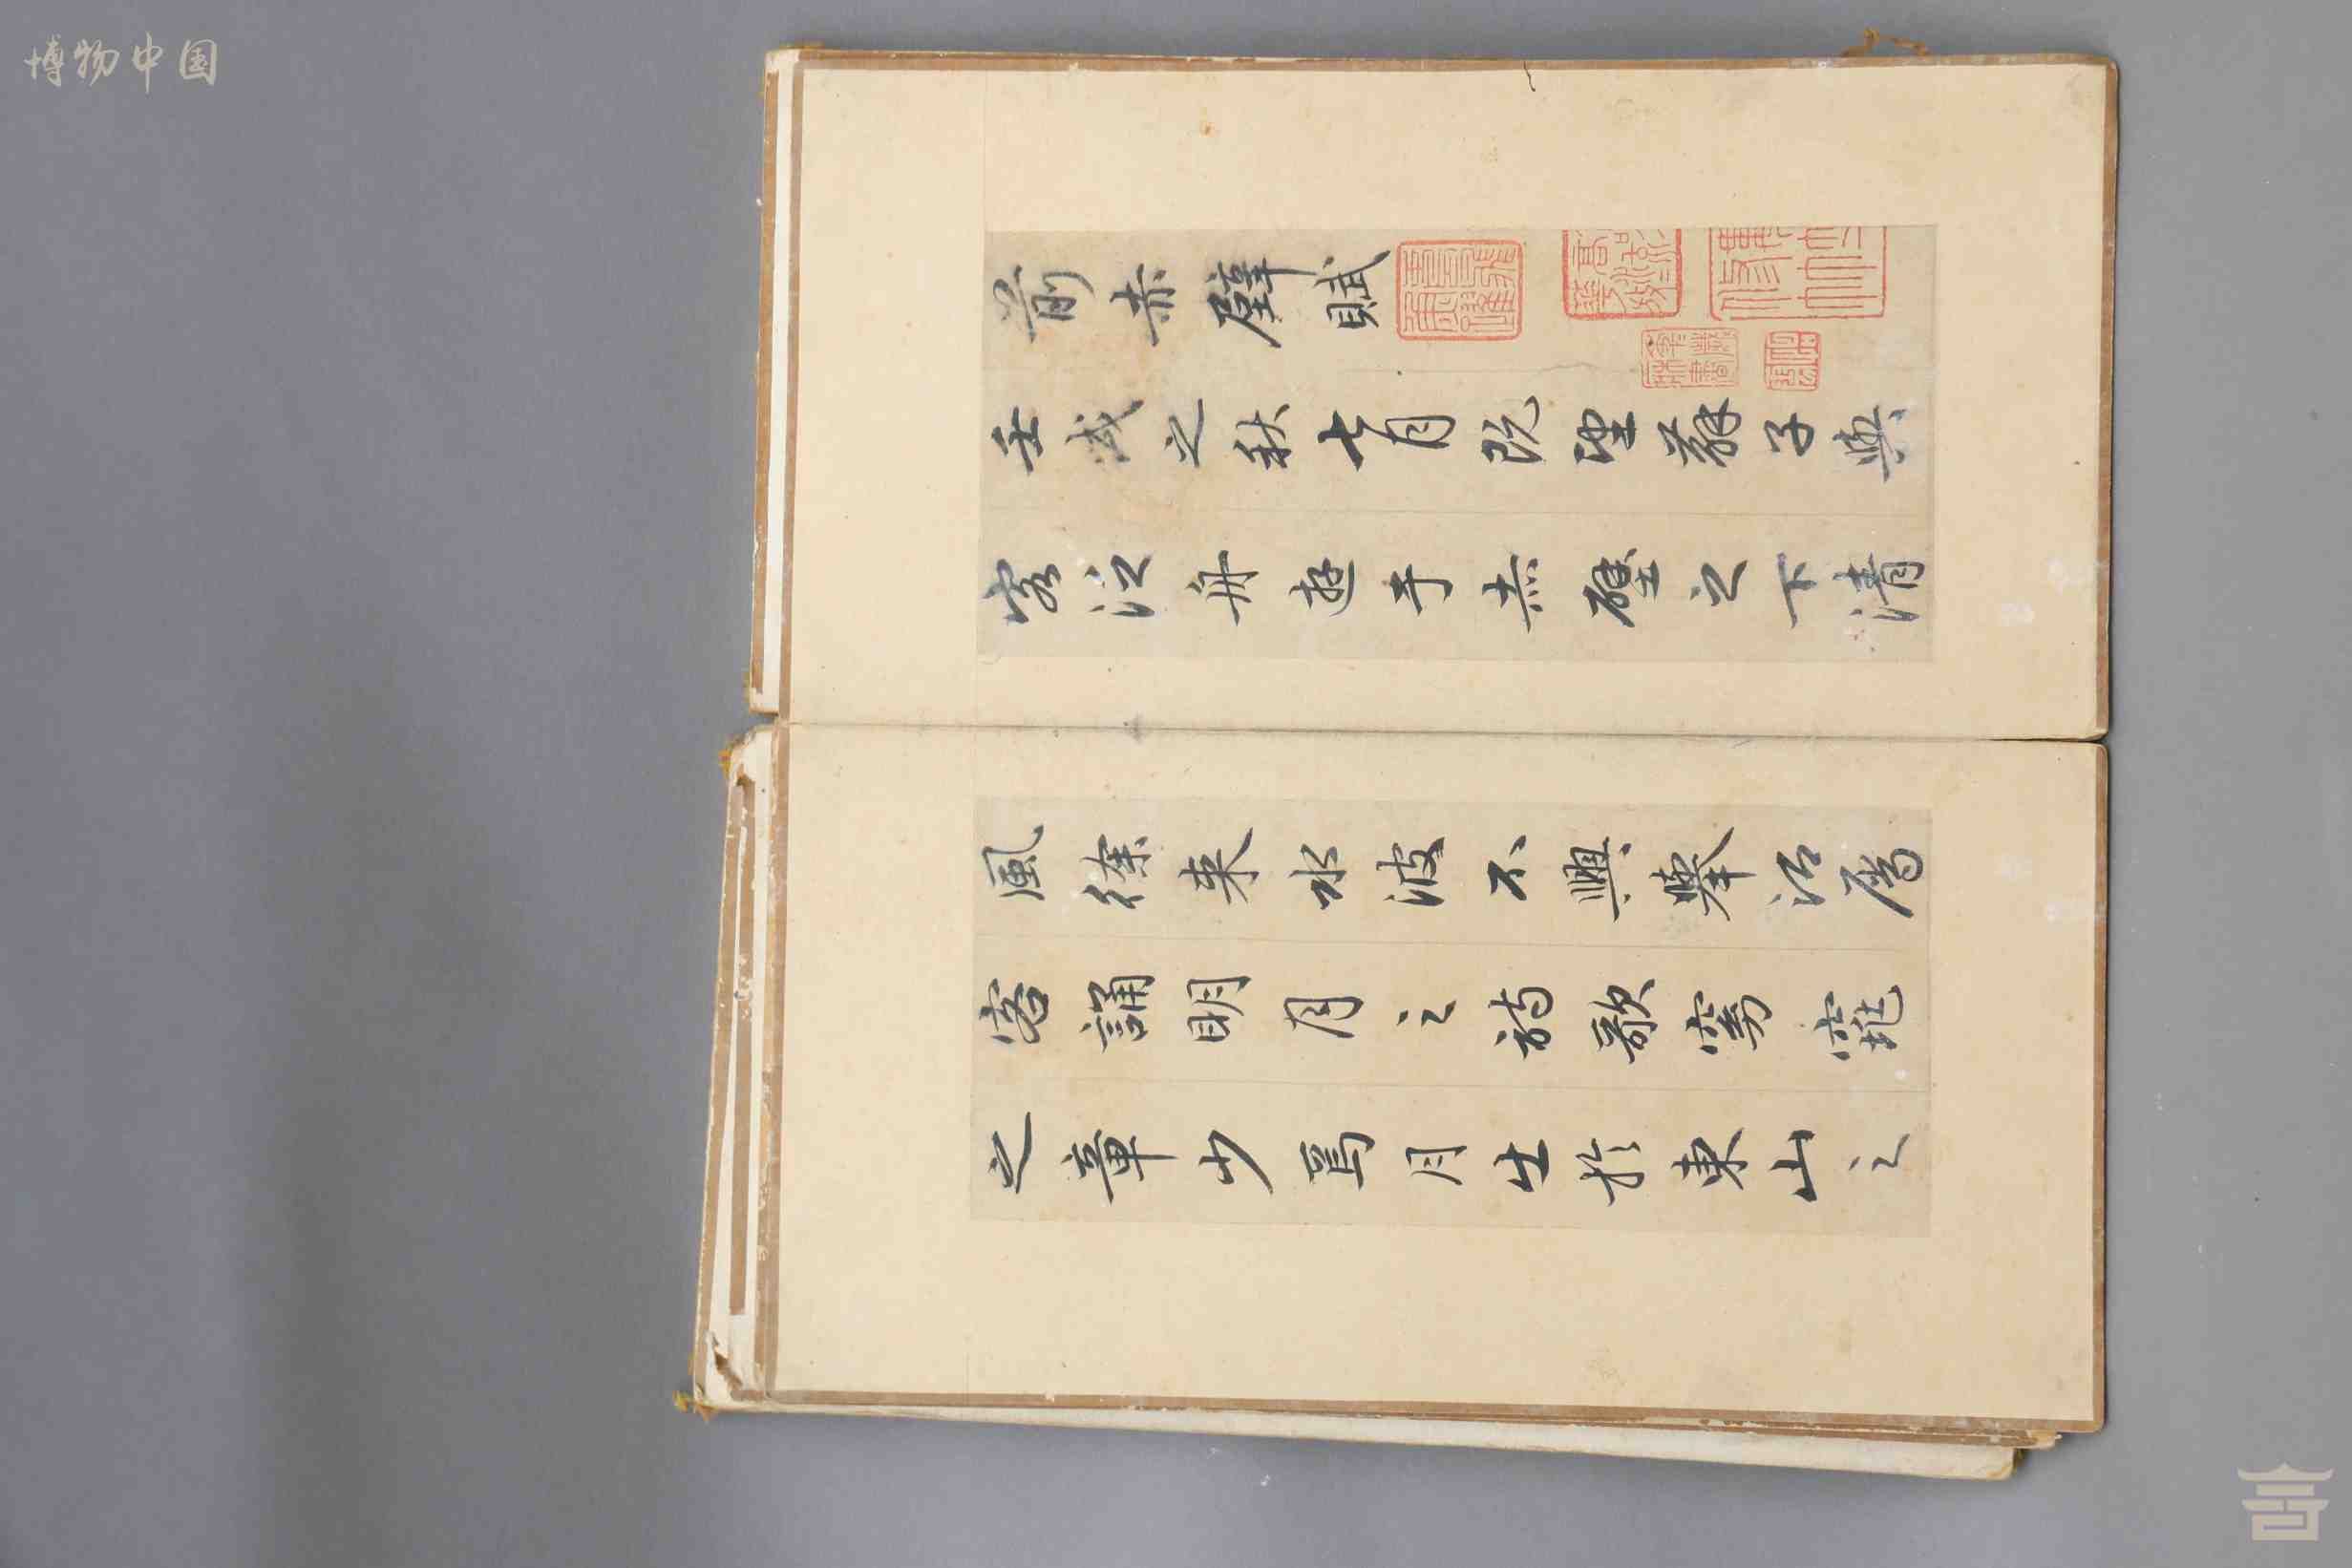 博物中国
前赤壁賦
壬戌之秋七月既望蘇子與
客泛舟遊于赤壁之下清
風徐来水波不興舉酒属
客誦明月之詩歌窈窕
之章少焉月出於東山之